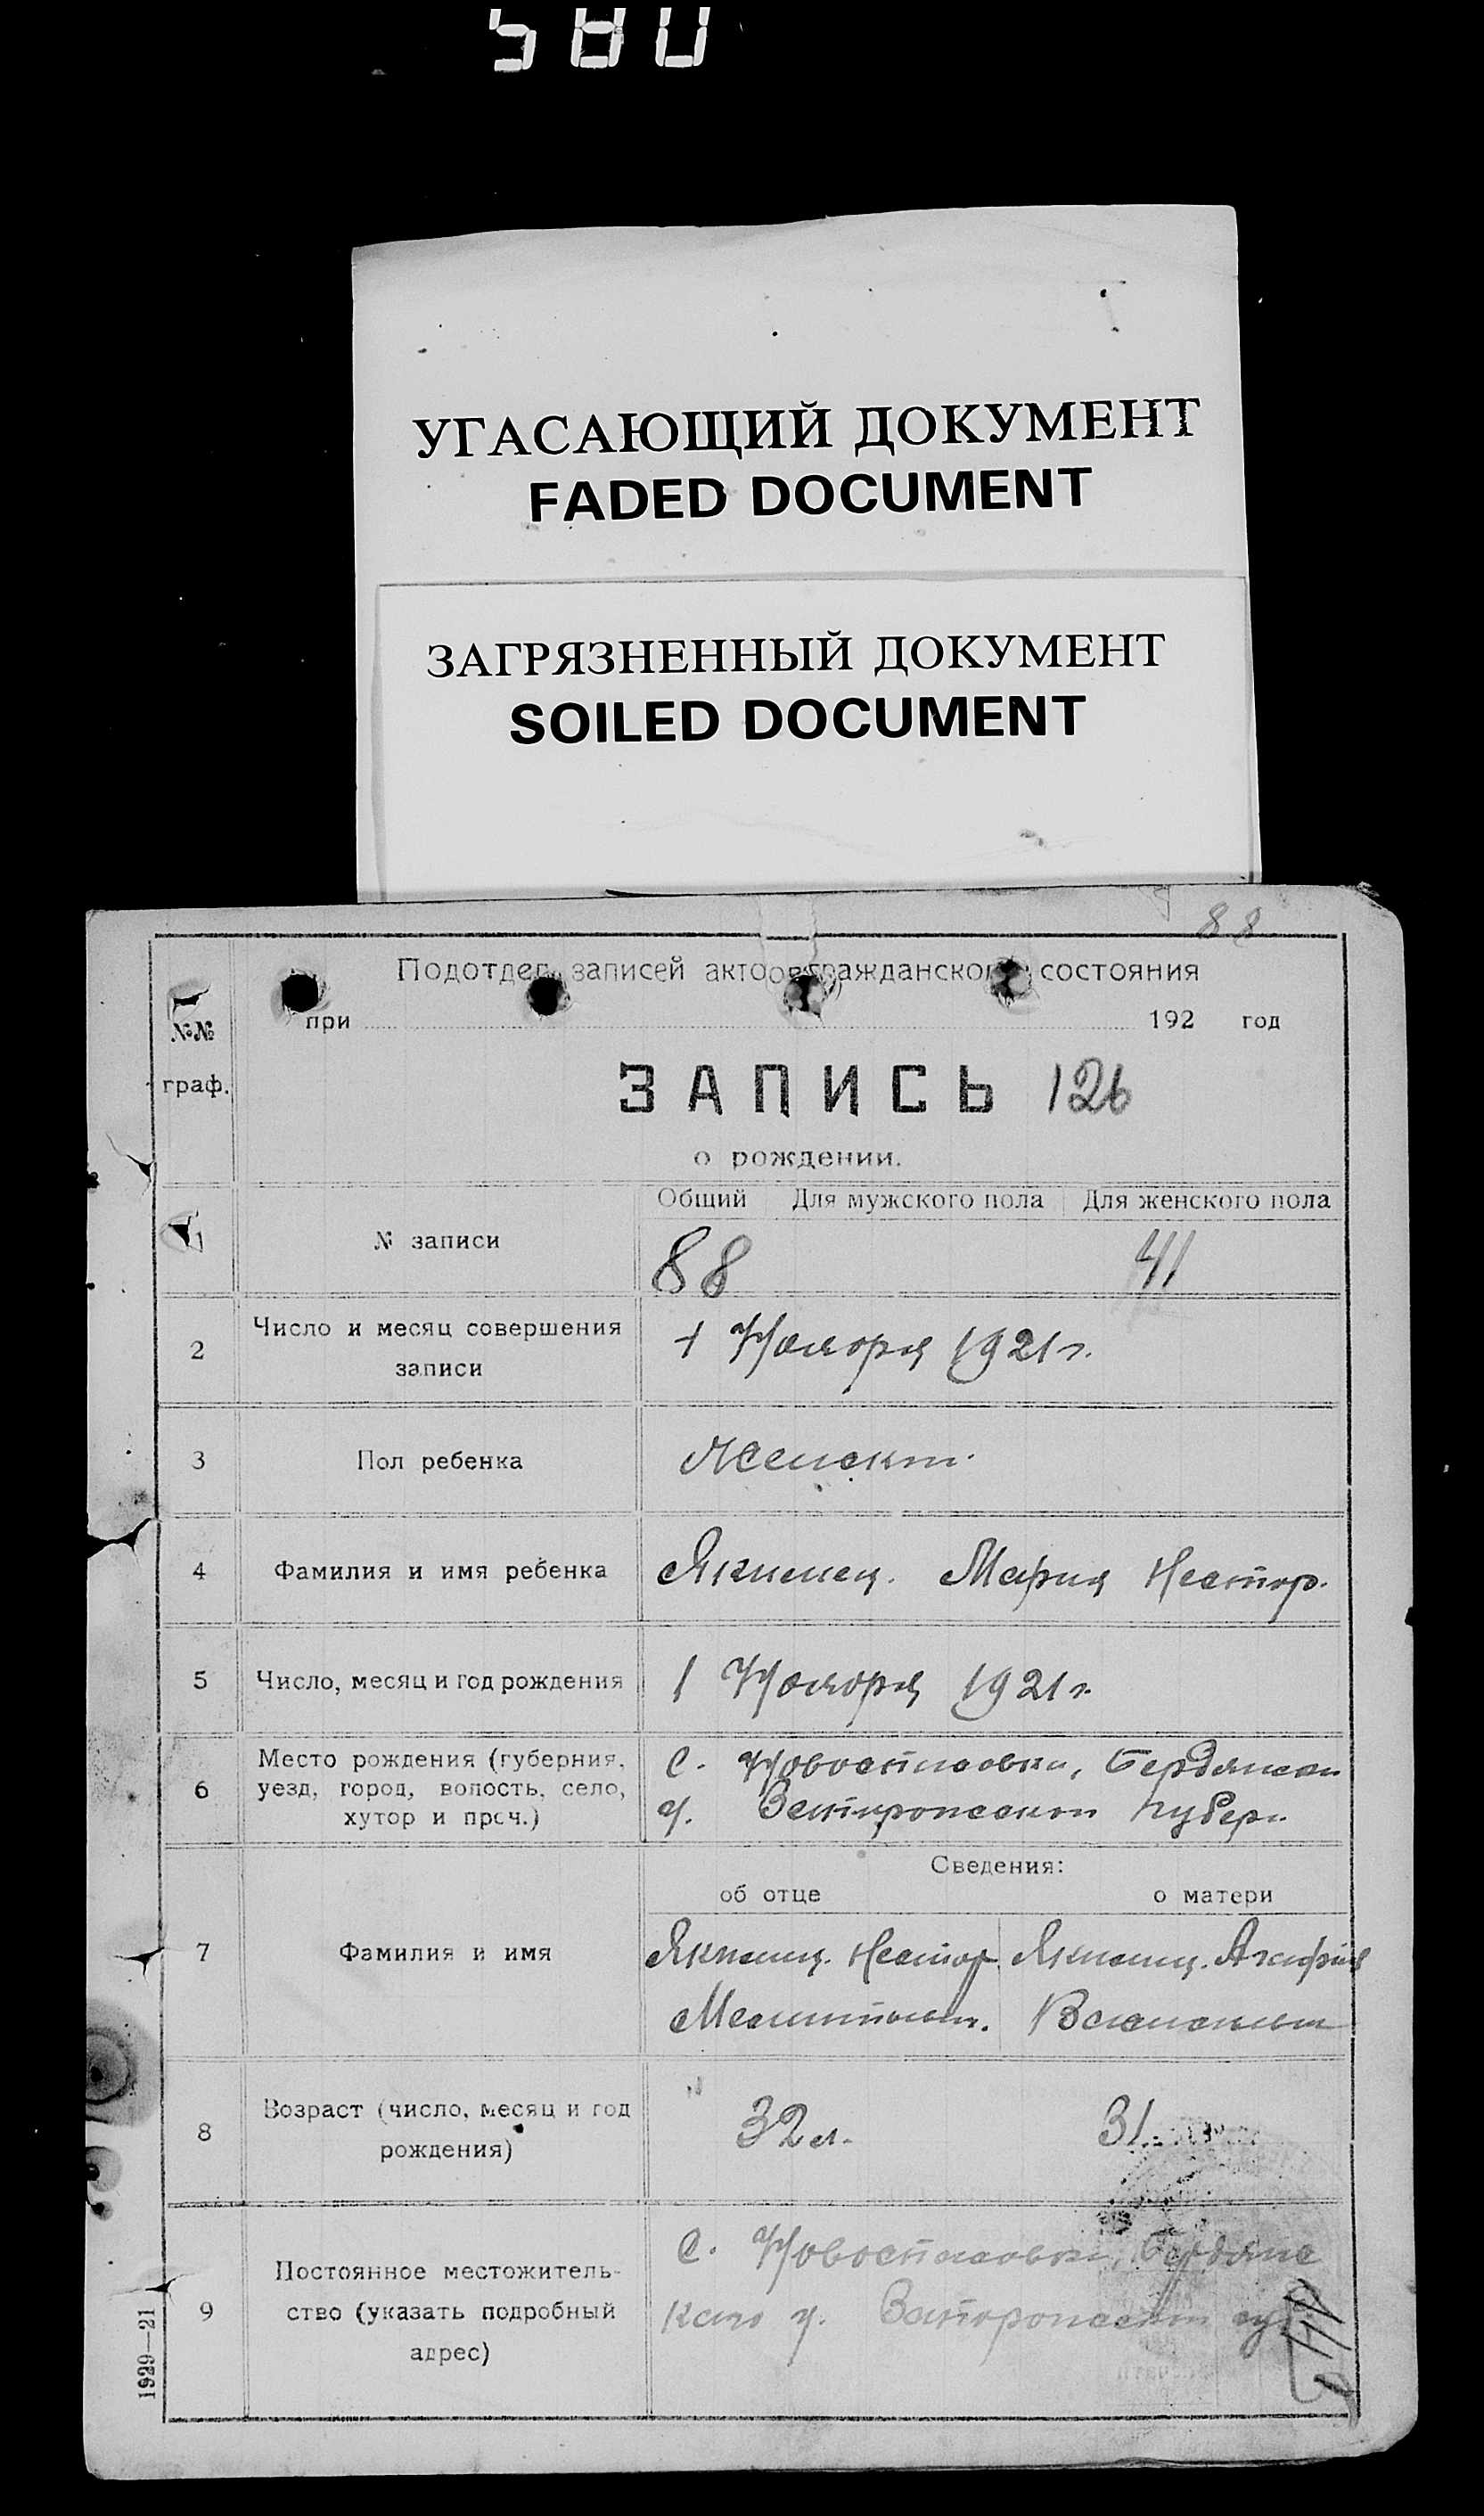 580
УГАСАЮЩИЙ ДОКУМЕНТ
FADED DOCUMENT
ЗАГРЯЗНЕННЫЙ ДОКУМЕНТ
SOILED DOCUMENT
88
Подотдел записей актов гражданского состояния
при 192 год
№№
граф.
ЗАПИСЬ 126
о рождении.
Общий Для мужского пола Для женского пола
1 № записи 88 41
2 Число и месяц совершения
записи
1 Ноября 1921 г.
3 Пол ребенка Женск.
4 Фамилия и имя ребенка Мария Нестор.
5 Число, месяц и год рождения 1 Ноября 1921 г.
6 Место рождения (губерния,
уезд, город, волость, село,
хутор и проч.)
с. Новоспасовки, Бердянск
у. губерн.
Сведения:
об отце о матери
7 Фамилия и имя
Нестор
8 Возраст (число, месяц и год
рождения)
32 л. 31
9 Постоянное местожитель-
ство (указать подробный
адрес)
с. Новоспасовки, Бердянс
каго у.
1929—21